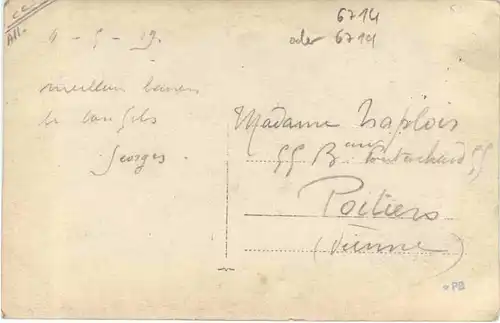 C.C.
All.
6714
oder 6714
4 - 5 - 19.
meilleurs baisers
de ton fils
Georges.
Madame Laplois
55 Bard Pont-achard 55
Poitiers
(Vienne)
PB